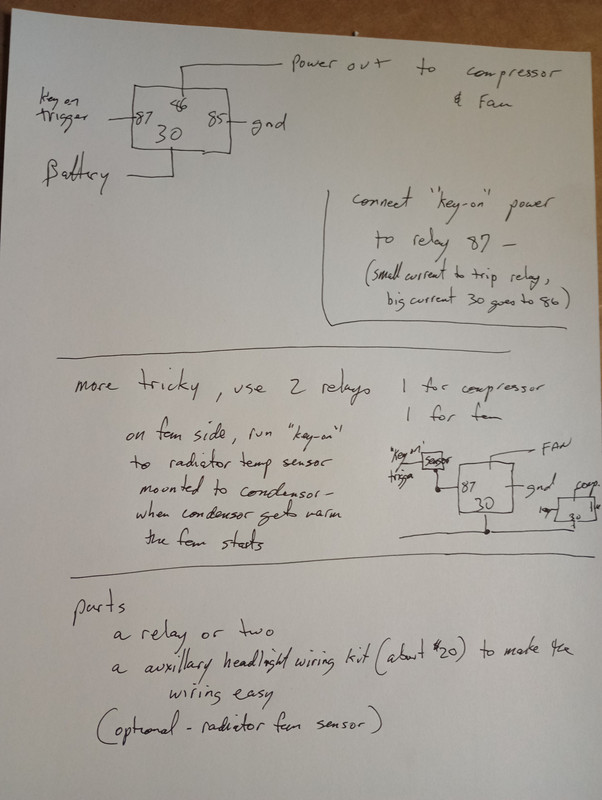 Power out to compressor
& Fan
Key on
trigger
87
86
85
30
gnd
Battery
connect "key-on" power
to relay 87 -
(small current to trip relay,
big current 30 goes to 86)
more tricky, use 2 relays 1 for compressor
1 for fan
on fan side, run "key-on"
to radiator temp sensor
mounted to condensor -
when condensor gets warm
the fan starts
"key on"
trigger
sensor
FAN
87
30
gnd
comp.
key
30
parts
a relay or two
a auxillary headlight wiring kit (about $20) to make the
wiring easy
(optional - radiator fan sensor)